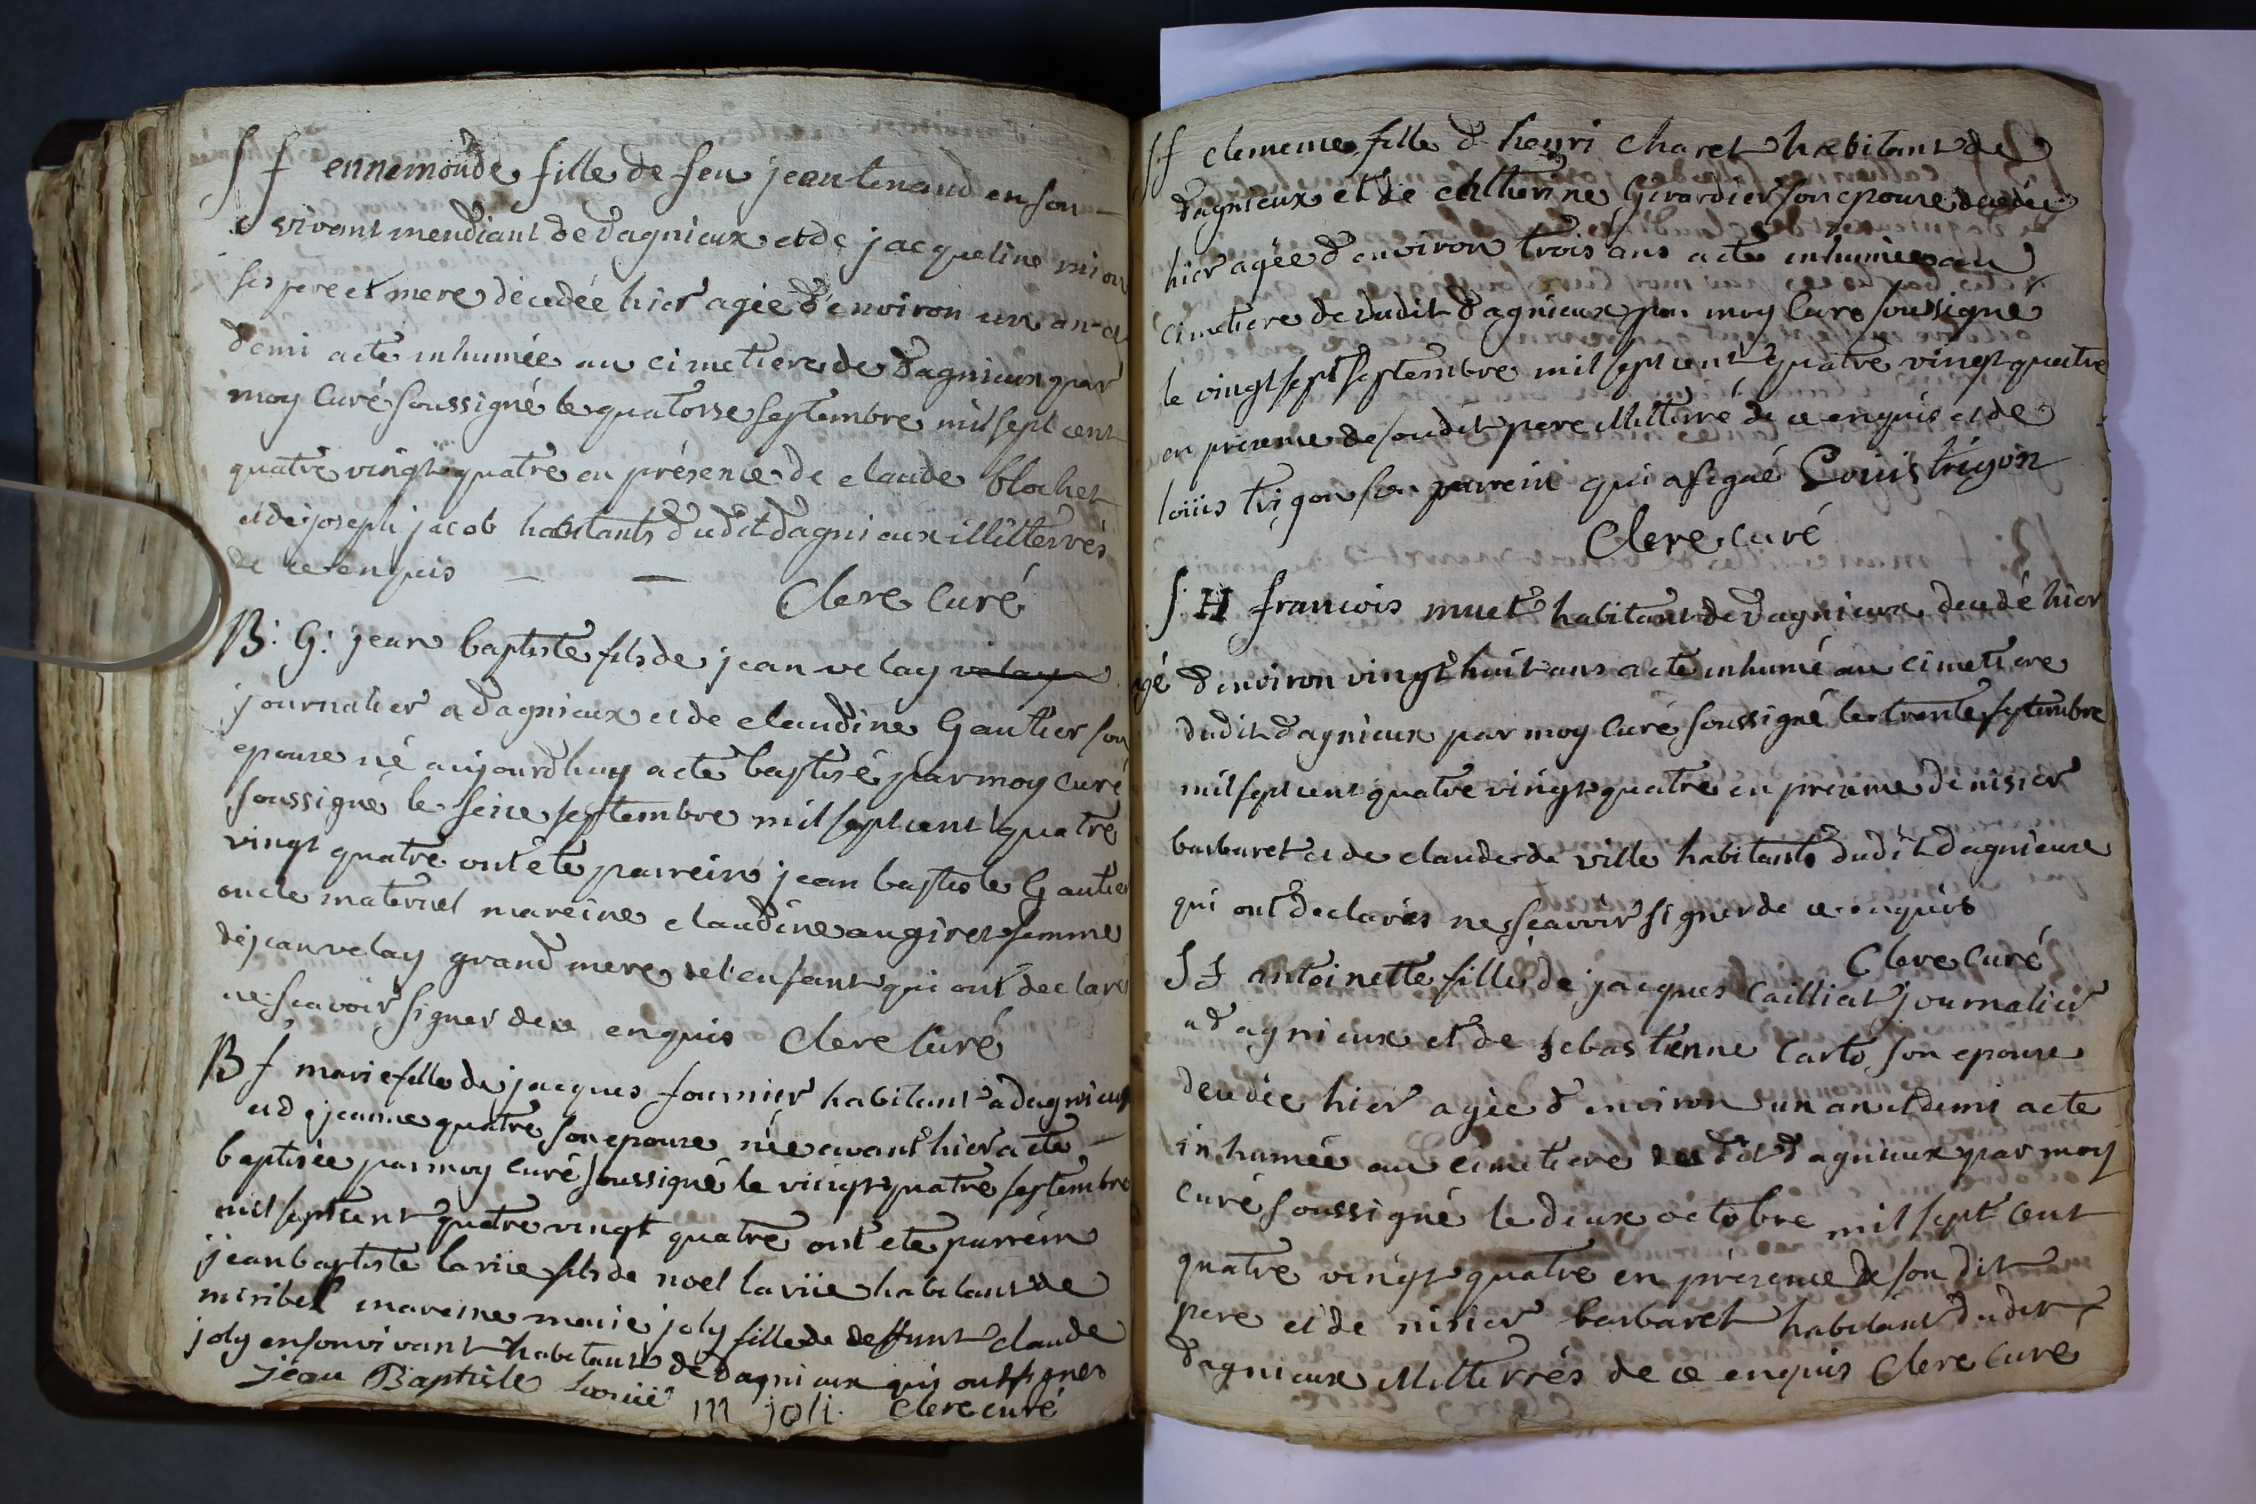 S f ennemonde fille de feu jean tenaud en son
vivant mendiant de dagnieux et de jacqueline
ses pere et mere decedée hier agée d'environ un an et
demi a eté inhumée au cimetiere de dagnieux par
moy curé soussigné le quatorse septembre mil sept cent
quatre vingt quatre en présence de claude blochet
et de joseph jacob habitants dudit dagnieux illitterrés
de ce enquis
Clere curé
B: G: jean baptiste fils de jean velay velay
journalier a dagnieux et de claudine Gautier son
epouse né aujourdhuy a eté baptisé par moy curé
soussigné le seize septembre mil sept cent quatre
vingt quatre ont été parrein jean baptiste Gautier
oncle maternel mareine claudine augiret femme
de jean velay grand mere de l'enfant qui ont declaré
ne scavoir signer de ce enquis Clere curé
B f marie fille de jacques fournier habitant a dagnieux
et de jeanne quatre son epouse née avant hier a eté
baptisée par moy curé soussigné le vingt quatre septembre
mil sept cent quatre vingt quatre ont eté parrein
jean baptiste lariie fils de noel lariie habitant de
miribel mareine marie joly fille de deffunt claude
joly en son vivant habitant de dagnieux qui ont signes
jean Baptiste Lariie m joli Clere curé
Sf clemence fille d henri charet habitant de
dagnieux et de catherine Girardier son epouse decedée
hier agée d'environ trois ans a eté inhumée au
cimetiere de dudit dagnieux par moy Curé soussigné
le vingt sept septembre mil sept cent quatre vingt quatre
en presence de soudit pere illitterré de ce enquis et de
loiiis trigon son parrein qui a signé Louis trigon
Clere curé
S: H francois muet habitant de dagnieux decedé hier
agé d'environ vingt huit ans a eté inhumé au cimetiere
dudit dagnieux par moy Curé soussigné le trente septembre
mil sept cent quatre vingt quatre en presence de nisier
barbaret et de claude de ville habitants dudit dagnieux
qui ont declarés ne scavoir signer de ce enquis
Clere curé
S f antoinette fille de jacques Cailliat journalier
a dagnieux et de sebastienne Carto son epouse
decedée hier agée d'environ un an et demi a eté
inhumée au cimetiere du dit dagnieux par moy
curé soussigné le deux octobre mil sept cent
quatre vingt quatre en présence de son dit
pere et de nisier barbaret habitant dudit
dagnieux illitterrés de ce enquis Clere Curé